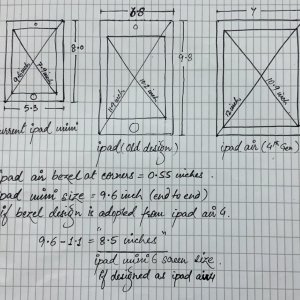 6.8
7
8.0
9.8
9.6 inch
7.9 inch
10.9 inch
12 inch
5.3
current ipad mini
ipad (old design)
ipad air (4th Gen)
ipad air bezel at corners = 0.55 inches.
ipad mini size = 9.6 inch (end to end)
if bezel design is adopted from ipad air 4.
9.6 - 1.1 = "8.5 inches"
ipad mini 6 screen size.
If designed as ipad air4